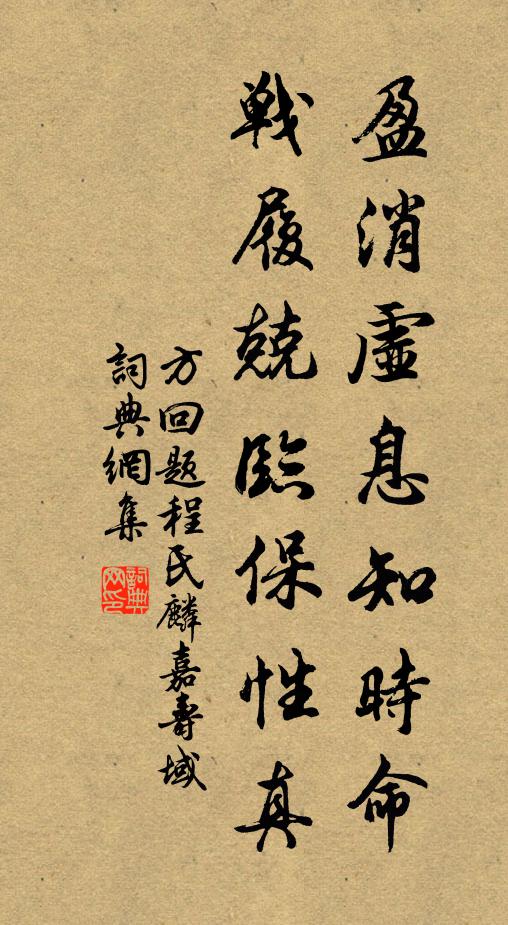 盈消虚息知時命
戦履兢臨保性真
方回题程氏麟嘉壽域
詞典網集
詞典网印